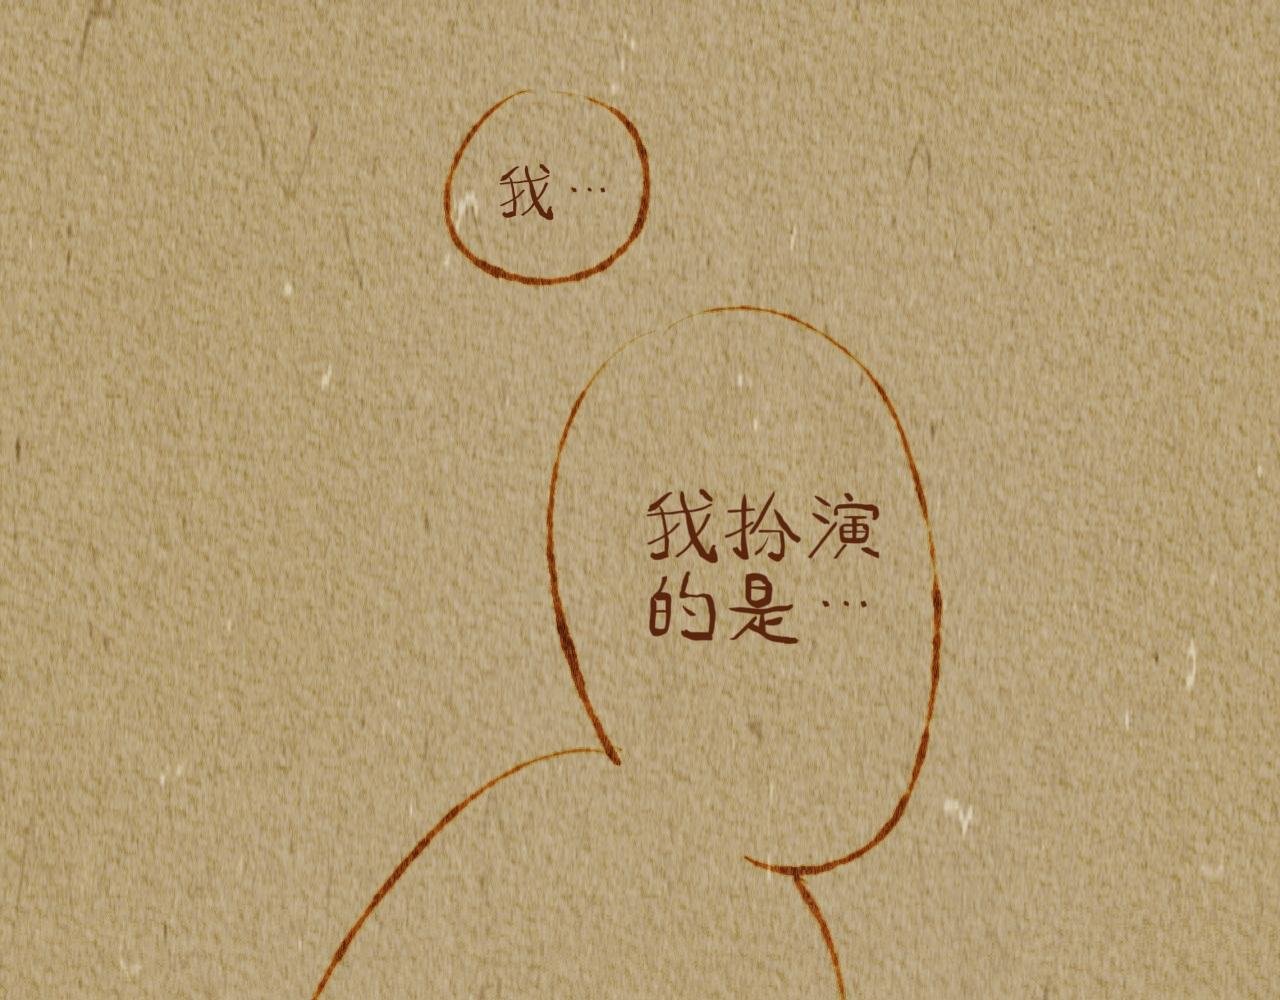 我…
我扮演
的是…